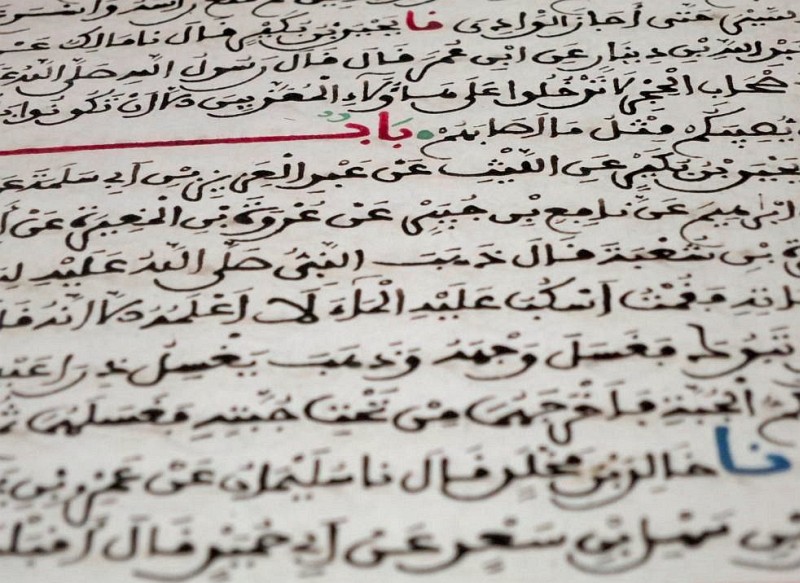 حتى أجاز الوادي نا يحيى بن بكير قال نا مالك عن
عبد الله بن دينار عن ابن عمر قال قال رسول الله صلى الله
أصحاب الحجر لا تدخلوا على هؤلاء المعذبين إلا أن تكونوا
يُصِيبَكُم مِثْلُ مَا أَصَابَهُمْ بَابٌ
يحيى بن بكير عن الليث عن عبد العزيز بن أبي سلمة
ابراهيم عن نافع بن جبير عن عروة بن المغيرة عن
بن شعبة قال ذهب النبي صلى الله عليه
فقمت أسكب عليه الماء لا أعلمه إلا
تبوك فغسل وجهه وذهب يغسل
الجبة فأخرجهما من تحت جبته فغسلهما
نا خالد بن مخلد قال نا سليمان عن عمرو بن
بن سهل بن سعد عن أبي حميد قال